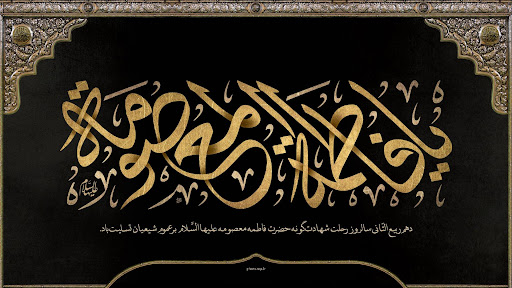 یا فاطمة المعصومة
علیها السلام
دهم ربیع الثانی سالروز رحلت شهادت‌گونه حضرت فاطمه معصومه علیها السّلام بر عموم شیعیان تسلیت باد.